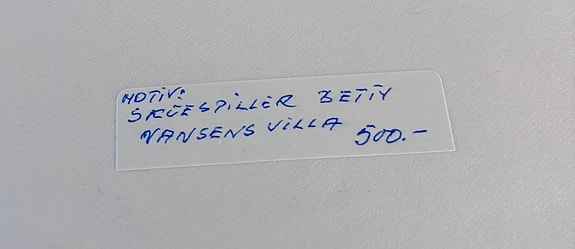 MOTIV:
SKUESPILLER BETTY
NANSENS VILLA 500.-